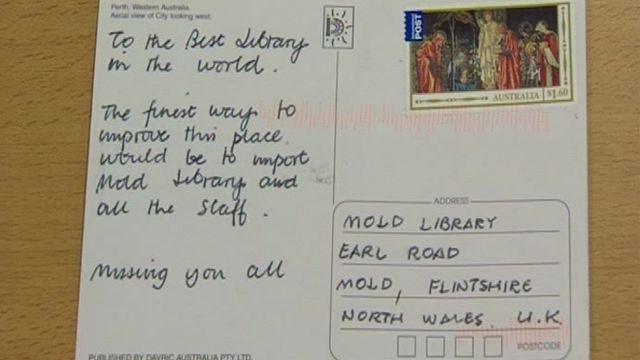 Perth, Western Australia.
Aerial view of City looking west.
To the Best Library
in the world.
The finest way to
improve this place
would be to import
Mold Library and
all the Staff.
Missing you all
PUBLISHED BY DAVRIC AUSTRALIA PTY. LTD.
POST
AUSTRALIA $1.60
ADDRESS
MOLD LIBRARY
EARL ROAD
MOLD, FLINTSHIRE
NORTH WALES. U.K.
POSTCODE